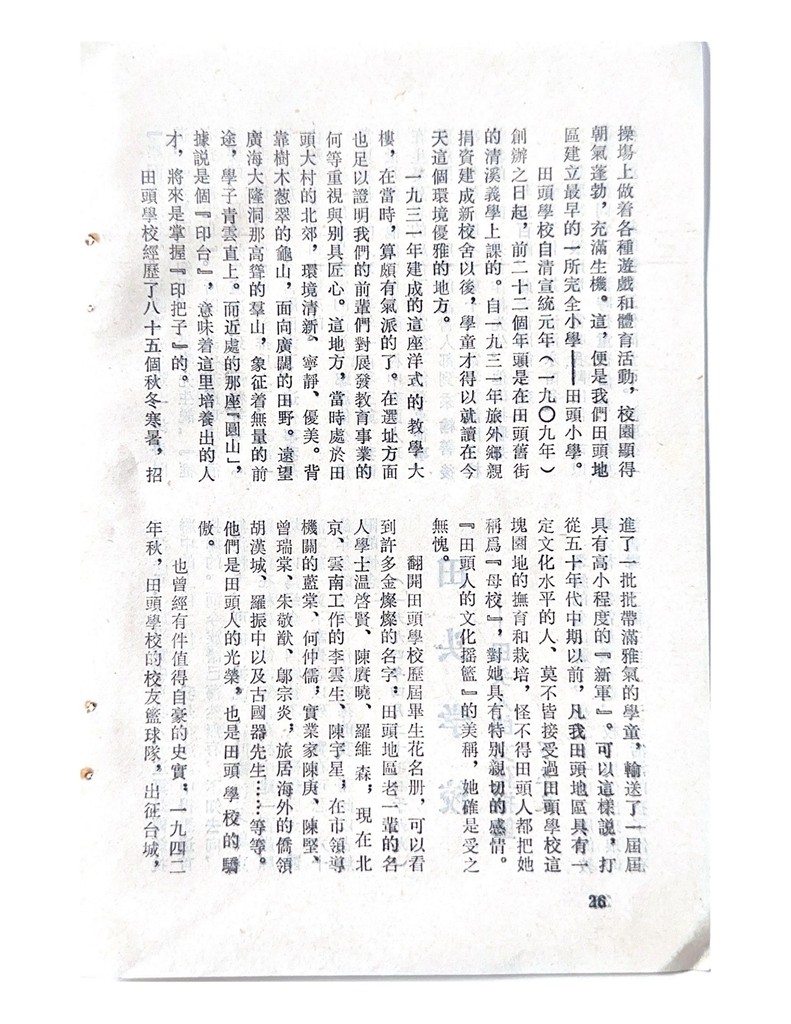 操場上做着各種遊戲和體育活動，校園顯得
朝氣蓬勃，充滿生機。這，便是我們田頭地
區建立最早的一所完全小學——田頭小學。
田頭學校自清宣統元年（一九〇九年）
創辦之日起，前二十二個年頭是在田頭舊街
的清溪義學上課的。自一九三一年旅外鄉親
捐資建成新校舍以後，學童才得以就讀在今
天這個環境優雅的地方。
一九三一年建成的這座洋式的教學大
樓，在當時，算頗有氣派的了。在選址方面
也足以證明我們的前輩們對展發教育事業的
何等重視與別具匠心。這地方，當時處於田
頭大村的北郊，環境清新、寧靜、優美。背
靠樹木葱翠的龜山，面向廣闊的田野。遠望
廣海大隆洞那高聳的羣山，象征着無量的前
途，學子青雲直上。而近處的那座『圓山』，
據説是個『印台』，意味着這里培養出的人
才，將來是掌握『印把子』的。
田頭學校經歷了八十五個秋冬寒暑，招
進了一批批帶滿雅氣的學童，輸送了一屆屆
具有高小程度的『新軍』。可以這樣説，打
從五十年代中期以前，凡我田頭地區具有一
定文化水平的人、莫不皆接受過田頭學校這
塊園地的撫育和栽培，怪不得田頭人都把她
稱爲『母校』，對她具有特別親切的感情。
『田頭人的文化摇籃』的美稱，她確是受之
無愧。
翻開田頭學校歷屆畢生花名册，可以看
到許多金燦燦的名字，田頭地區老一輩的名
人學士温啓賢、陳賡曉、羅維森，現在北
京、雲南工作的李雲生、陳宇星，在市領導
機關的藍棠、何仲儒，實業家陳庚、陳堅、
曾瑞棠、朱敬猷、鄔宗炎，旅居海外的僑領
胡漢城、羅振中以及古國器先生……等等。
他們是田頭人的光榮，也是田頭學校的驕
傲。
也曾經有件值得自豪的史實，一九四二
年秋，田頭學校的校友籃球隊，出征台城，
26